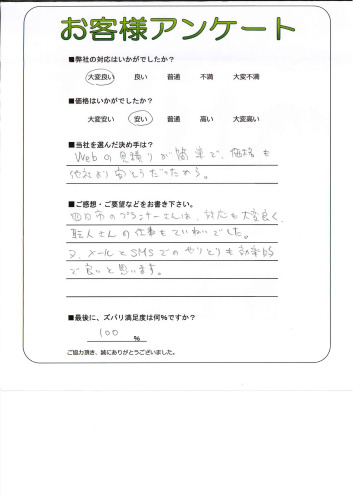 お客様アンケート
■弊社の対応はいかがでしたか?
大変良い 良い 普通 不満 大変不満
■価格はいかがでしたか?
大変安い 安い 普通 高い 大変高い
■当社を選んだ決め手は?
Webの見積りが簡単で、価格も
他社より安そうだったから。
■ご感想・ご要望などをお書き下さい。
四日市のプランナーさんは、対応も大変良く、
職人さんの仕事もていねいでした。
又、メールとSMSでのやりとりも効率的
で良いと思います。
■最後に、ズバリ満足度は何%ですか?
100 %
ご協力頂き、誠にありがとうございました。